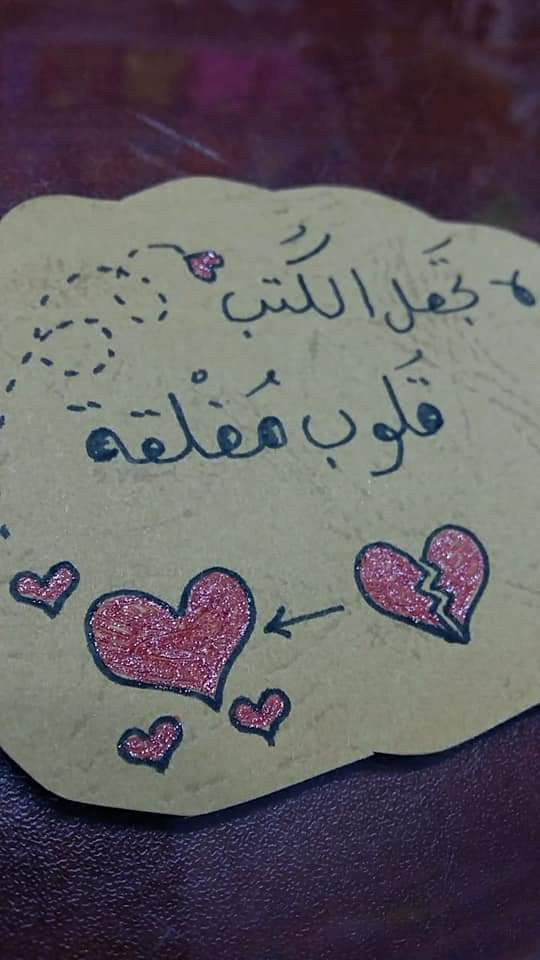 لا تجعل الكُتب
قُلوب مُغلْقة